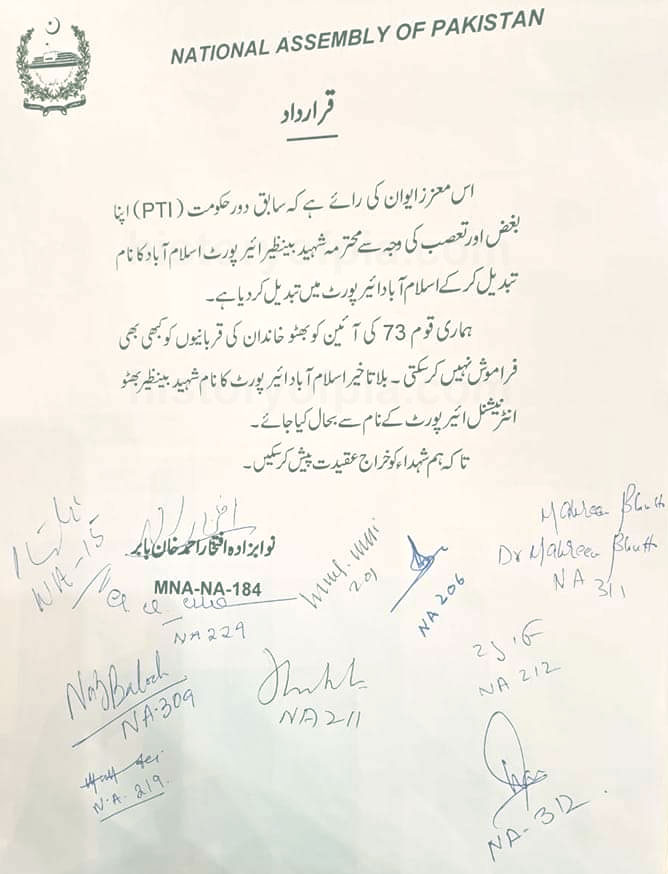 NATIONAL ASSEMBLY OF PAKISTAN
قرارداد
اس معزز ایوان کی رائے ہے کہ سابق دور حکومت (PTI) اپنا
بغض اور تعصب کی وجہ سے محترمہ شہید بینظیر ائیر پورٹ اسلام آباد کا نام
تبدیل کر کے اسلام آباد ائیر پورٹ میں تبدیل کر دیا ہے۔
ہماری قوم 73 کی آئین کو بھٹو خاندان کی قربانیوں کو کبھی بھی
فراموش نہیں کر سکتی ۔ بلا تاخیر اسلام آباد ائیر پورٹ کا نام شہید بینظیر بھٹو
انٹرنیشنل ائیر پورٹ کے نام سے بحال کیا جائے۔
تا کہ ہم شہداء کو خراج عقیدت پیش کر سکیں۔
historyofpia.com
Mahreen Bhutto
Dr Mahreen Bhutto
NA 311
NA-15
نوابزادہ افتخار احمد خان بابر
MNA-NA-184
NA 229
201
NA 206
NA 212
Naz Baloch
NA-309
NA 211
N.A-219.
NA-312